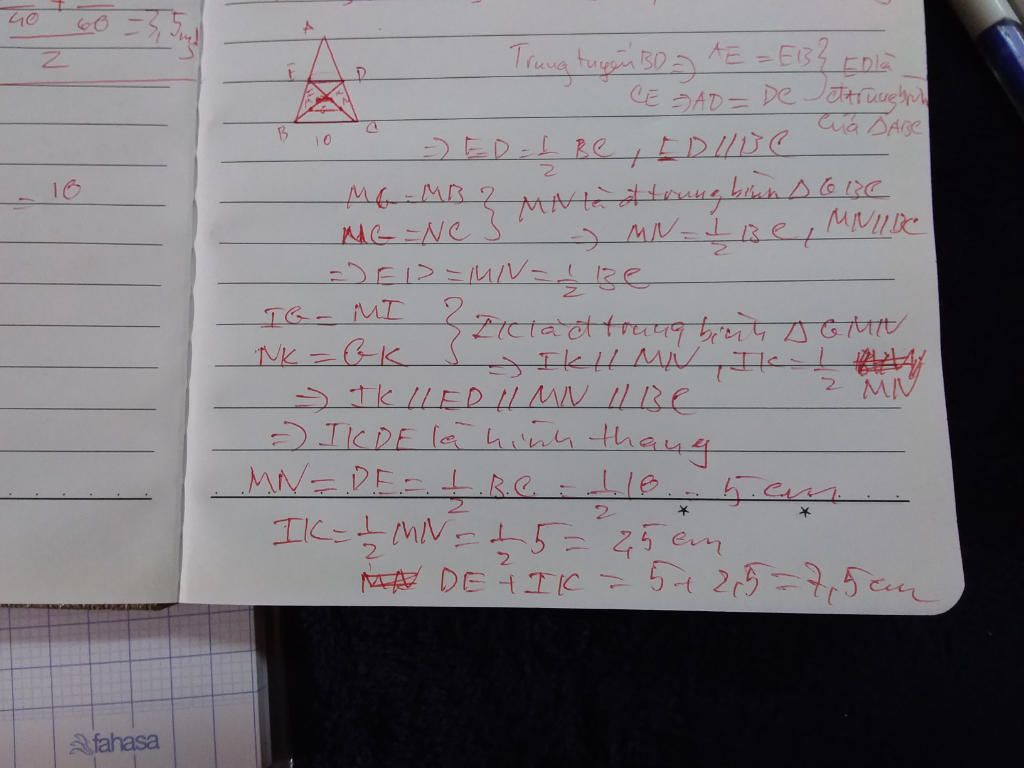 40 + 60 = 3,5
2
= 10
A
E D
B 10 C
Trung tuyến BD => AE = EB } ED là
CE => AD = DC đtrung bình
của △ABC
=> ED = 1/2 BC, ED // BC
MG = MB } MN là đtrung bình △GBC
NG = NC => MN = 1/2 BC, MN // BC
=> ED = MN = 1/2 BC
IG = MI } IK là đtrung bình △GMN
NK = GK => IK // MN, IK = 1/2 MN
=> IK // ED // MN // BC
=> IKDE là hình thang
MN = DE = 1/2 BC = 1/2 10 = 5 cm
IK = 1/2 MN = 1/2 5 = 2,5 cm
DE + IK = 5 + 2,5 = 7,5 cm
fahasa